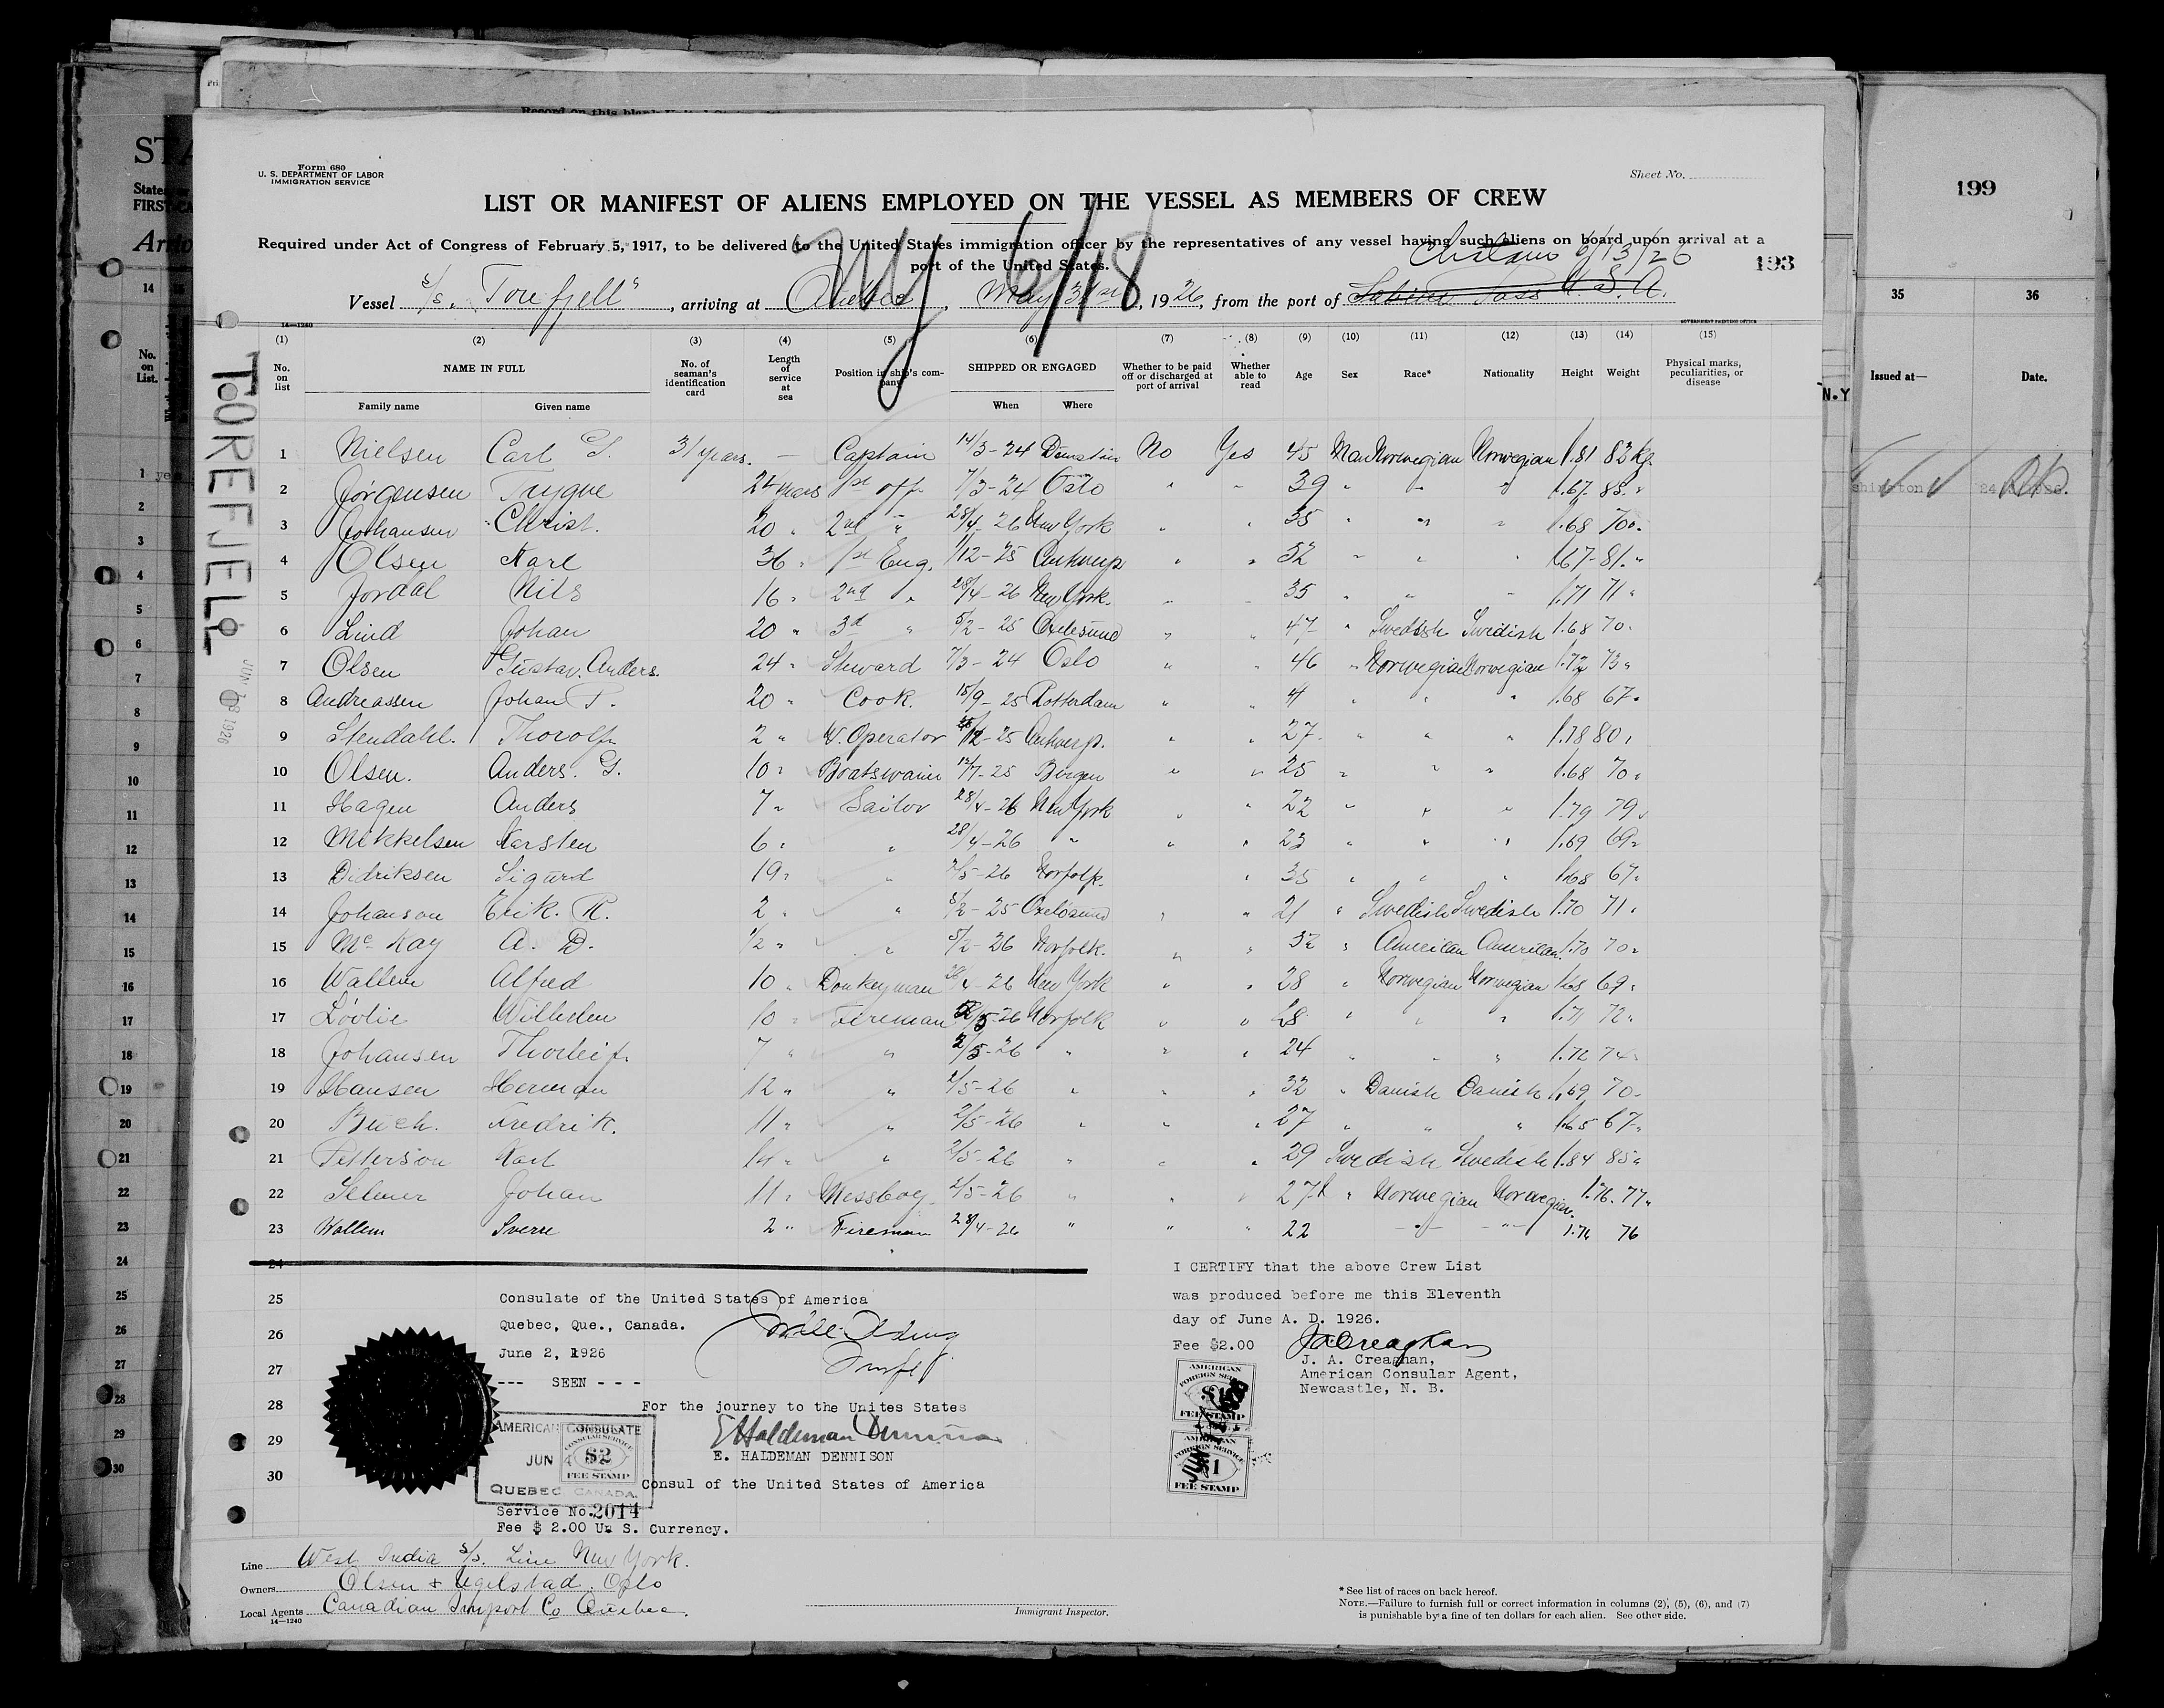 Form 680
U. S. DEPARTMENT OF LABOR
IMMIGRATION SERVICE
Sheet No.
LIST OR MANIFEST OF ALIENS EMPLOYED ON THE VESSEL AS MEMBERS OF CREW
Required under Act of Congress of February 5, 1917, to be delivered to the United States immigration officer by the representatives of any vessel having such aliens on board upon arrival at a
port of the United States.
6/13/26
193
NY 6/18
Vessel S/S. "Torefjell", arriving at Quebec, May 31st, 1926, from the port of Sabine Pass U.S.A.
14—1240
GOVERNMENT PRINTING OFFICE
(1) (2) (3) (4) (5) (6) (7) (8) (9) (10) (11) (12) (13) (14) (15)
No. on list NAME IN FULL Family name Given name No. of seaman's identification card Length of service at sea Position in ship's company SHIPPED OR ENGAGED When Where Whether to be paid off or discharged at port of arrival Whether able to read Age Sex Race* Nationality Height Weight Physical marks, peculiarities, or disease
1 Nielsen Carl 31 years. — Captain 14/3-24 No Yes 45 Man Norwegian Norwegian 1.81 83 kg.
2 Jörgensen Trygve 24 years 1st off. 7/3-24 Oslo " " 39 " " " 1.67 85. "
3 Johansen Christ. 20 " 2nd " 28/4-26 New York " " 35 " " " 1.68 70 "
4 Olsen Karl 36 " 1st Eng. 1/12-25 Antwerp " " 52 " " " 1.67 81. "
5 Jordal Nils 16 " 2nd " 28/4-26 New York. " " 35 " " " 1.71 71 "
6 Lind Johan 20 " 3d " 5/2-25 Oxelesund " " 47 " Swedish Swedish 1.68 70 "
7 Olsen Gustav. Anders. 24 " Steward 7/3-24 Oslo " " 46 " Norwegian Norwegian 1.72 73 "
8 Andreassen Johan P. 20 " Cook. 15/9-25 Rotterdam " " 41 " " " 1.68 67 "
9 Stendahl. Thorolf. 2 " W. Operator /12-25 Antwerp. " " 27 " " " 1.78 80 "
10 Olsen. Anders. G. 10 " Boatswain 12/7-25 Bergen " " 25 " " " 1.68 70 "
11 Hagen Anders 7 " Sailor 28/4-26 New York " " 22 " " " 1.79 79 "
12 Mekkelsen Karsten 6 " " 28/4-26 " " " 23 " " " 1.69 69 "
13 Didriksen Sigurd 19 " " 2/5-26 Norfolk. " 35 " " " 1.68 67 "
14 Johanson Erik. R. 2 " " 5/2-25 Oxelösund " " 21 " Swedish Swedish 1.70 71 "
15 Mc Kay A. D. 1/2 " " 5/2-26 Norfolk. " " 32 " American American 1.70 70 "
16 Wallem Alfred 10 " Donkeyman 28/4-26 New York " " 28 " Norwegian Norwegian 1.68 69 "
17 Wilhelm 10 " Fireman 2/5-26 Norfolk " " 28 " " " 1.71 72 "
18 Johansen Thorleif. 7 " " 2/5-26 " " " 24 " " " 1.72 74 "
19 Hansen Herman 12 " " 2/5-26 " " " 32 " Danish Danish 1.69 70 "
20 Buch. Fredrik. 11 " " 2/5-26 " " " 27 " " " 1.65 67 "
21 Petterson Karl 14 " " 2/5-26 " " " 29 Swedish Swedish 1.84 85 "
22 Selmer Johan 11 " Messboy 2/5-26 " " " 27 " Norwegian Norwegian. 1.76. 77 "
23 Wallem Sverre 2 " Fireman 28/4-26 " " " 22 -"- -"- 1.76 76
24
25
26
27
28
29
30
Consulate of the United States of America
Quebec, Que., Canada.
June 2, 1926
--- SEEN - - -
For the journey to the Unites States
E Haldeman Dennison
E. HALDEMAN DENNISON
Consul of the United States of America
AMERICAN CONSULATE
JUN
QUEBEC, CANADA.
CONSULAR SERVICE
$2
FEE STAMP
Service No. 2014
Fee $ 2.00 U. S. Currency.
I CERTIFY that the above Crew List
was produced before me this Eleventh
day of June A. D. 1926.
Fee $2.00
J A Creaghan
J. A. Creaghan,
American Consular Agent,
Newcastle, N. B.
AMERICAN
FOREIGN SERVICE
$1
FEE STAMP
AMERICAN
FOREIGN SERVICE
$1
FEE STAMP
Line West India S/S. Line New York.
Owners Olsen & Ugelstad. Oslo
Local Agents Canadian Import Co Quebec.
14—1240
Immigrant Inspector.
* See list of races on back hereof.
NOTE.—Failure to furnish full or correct information in columns (2), (5), (6), and (7)
is punishable by a fine of ten dollars for each alien. See other side.
TOREFJELL
JUN 18 1926
199
35 36
Issued at— Date.
N.Y